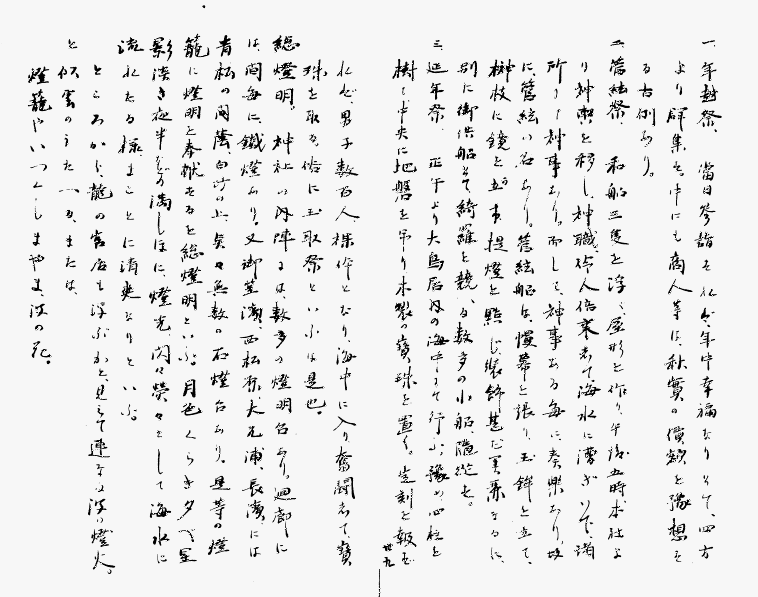 一、年越祭、當日参詣をれば、年中幸福なりとて、四方
より群集を、中にも商人等は、秋實の價額を豫想を
る古例あり。
二、管絃祭、和船三隻を浮べ、屋形を作り、午後五時本社よ
り神輿を移し、神職伶人倍乗して海水に漕ぎいで、諸
所にて神事あり。而して、神事ある毎に、奏樂あり、故
に、管絃の名あり。管絃船は、慢幕を張り、玉鉾を立て、
榊枝に鏡を 提燈を點じ、装飾甚だ美麗なるに、
別に御供船とて綺羅を競へる数多の小船、隨従を。
三、延年祭、正午より大鳥居内の海中にて行ふ、豫め四柱を
樹て中央に地盤を吊り木製の寶珠を置く。定刻を報ぜ
廿九
れば、男子数百人裸体となり、海中に入り奮闘して、寶
珠を取る、俗に玉取祭といふは是也。
総燈明。神社の内陣には、数多の燈明台あり。廻廊に
は、間毎に鐵燈あり。又御笠濱、西松原、大元浦、長濱には
青松の間蔭、白沙の上、点々無数の石燈台あり。是等の燈
籠に燈明を奉献をるを総燈明といふ。月色くらき夕べ星
影淡き夜半 満しほに、燈光、閃々熒々として海水に
流れたる様、まことに清爽なりといふ。
ところから、龍の宮居も浮ぶかと、見えて連なる波の燈火。
と 雲のうたへる、または、
燈籠やいつくしまやま、波の花。